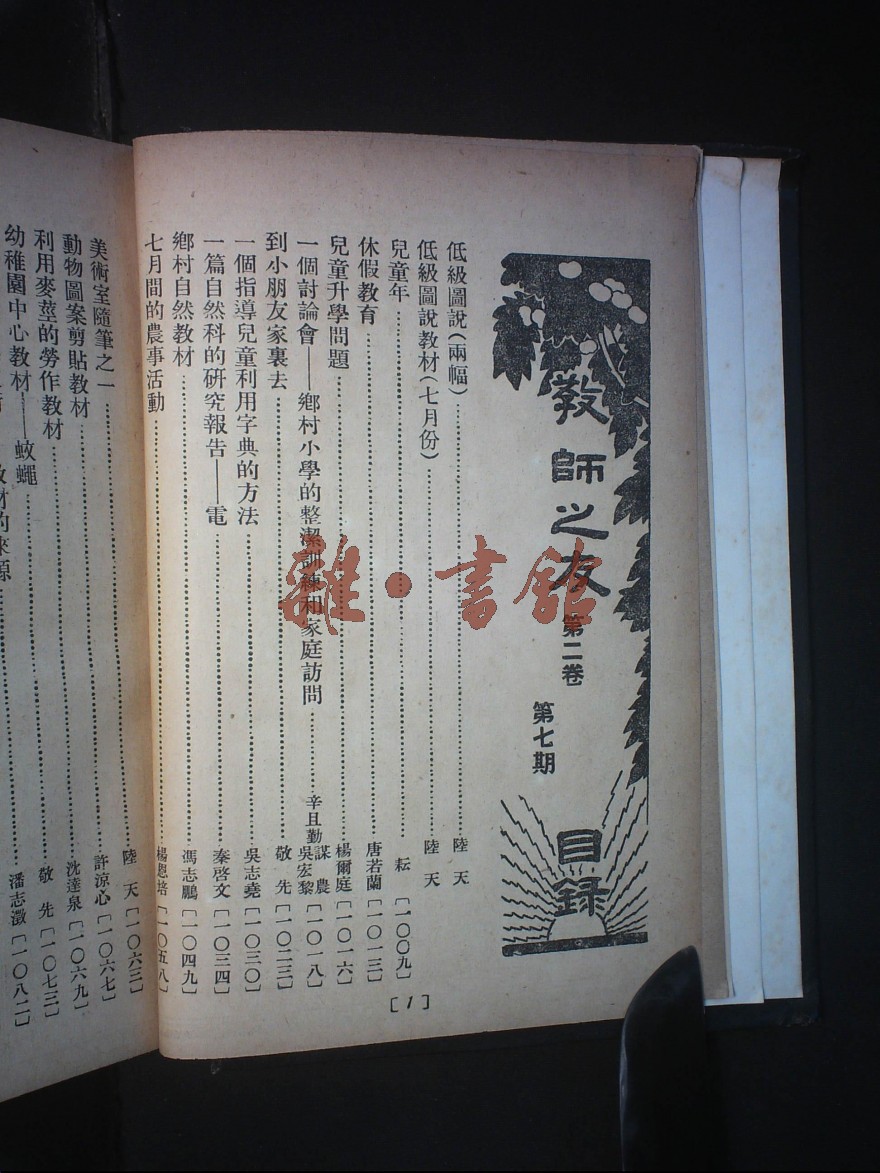 教師之友
第二卷
第七期
目錄
低級圖說(兩幅)……陸 天
低級圖說教材(七月份)……陸 天
兒童年……耘[一〇〇九]
休假教育……唐若蘭[一〇一三]
兒童升學問題……楊爾庭[一〇一六]
一個討論會——鄉村小學的整潔訓練和家庭訪問……辛且勤 謀農 吳宏黎[一〇一八]
到小朋友家裏去……敬 先[一〇二三]
一個指導兒童利用字典的方法……吳志堯[一〇三〇]
一篇自然科的研究報告——電……秦啓文[一〇三四]
鄉村自然教材……馮志鵬[一〇四九]
七月間的農事活動……楊恩培[一〇五八]
[1]
美術室隨筆之一……陸 天[一〇六三]
動物圖案剪貼教材……許涼心[一〇六七]
利用麥莖的勞作教材……沈達泉[一〇六九]
幼稚園中心教材——蚊蠅……敬 先[一〇七三]
教材的來源……潘志澂[一〇八二]
雜·書館